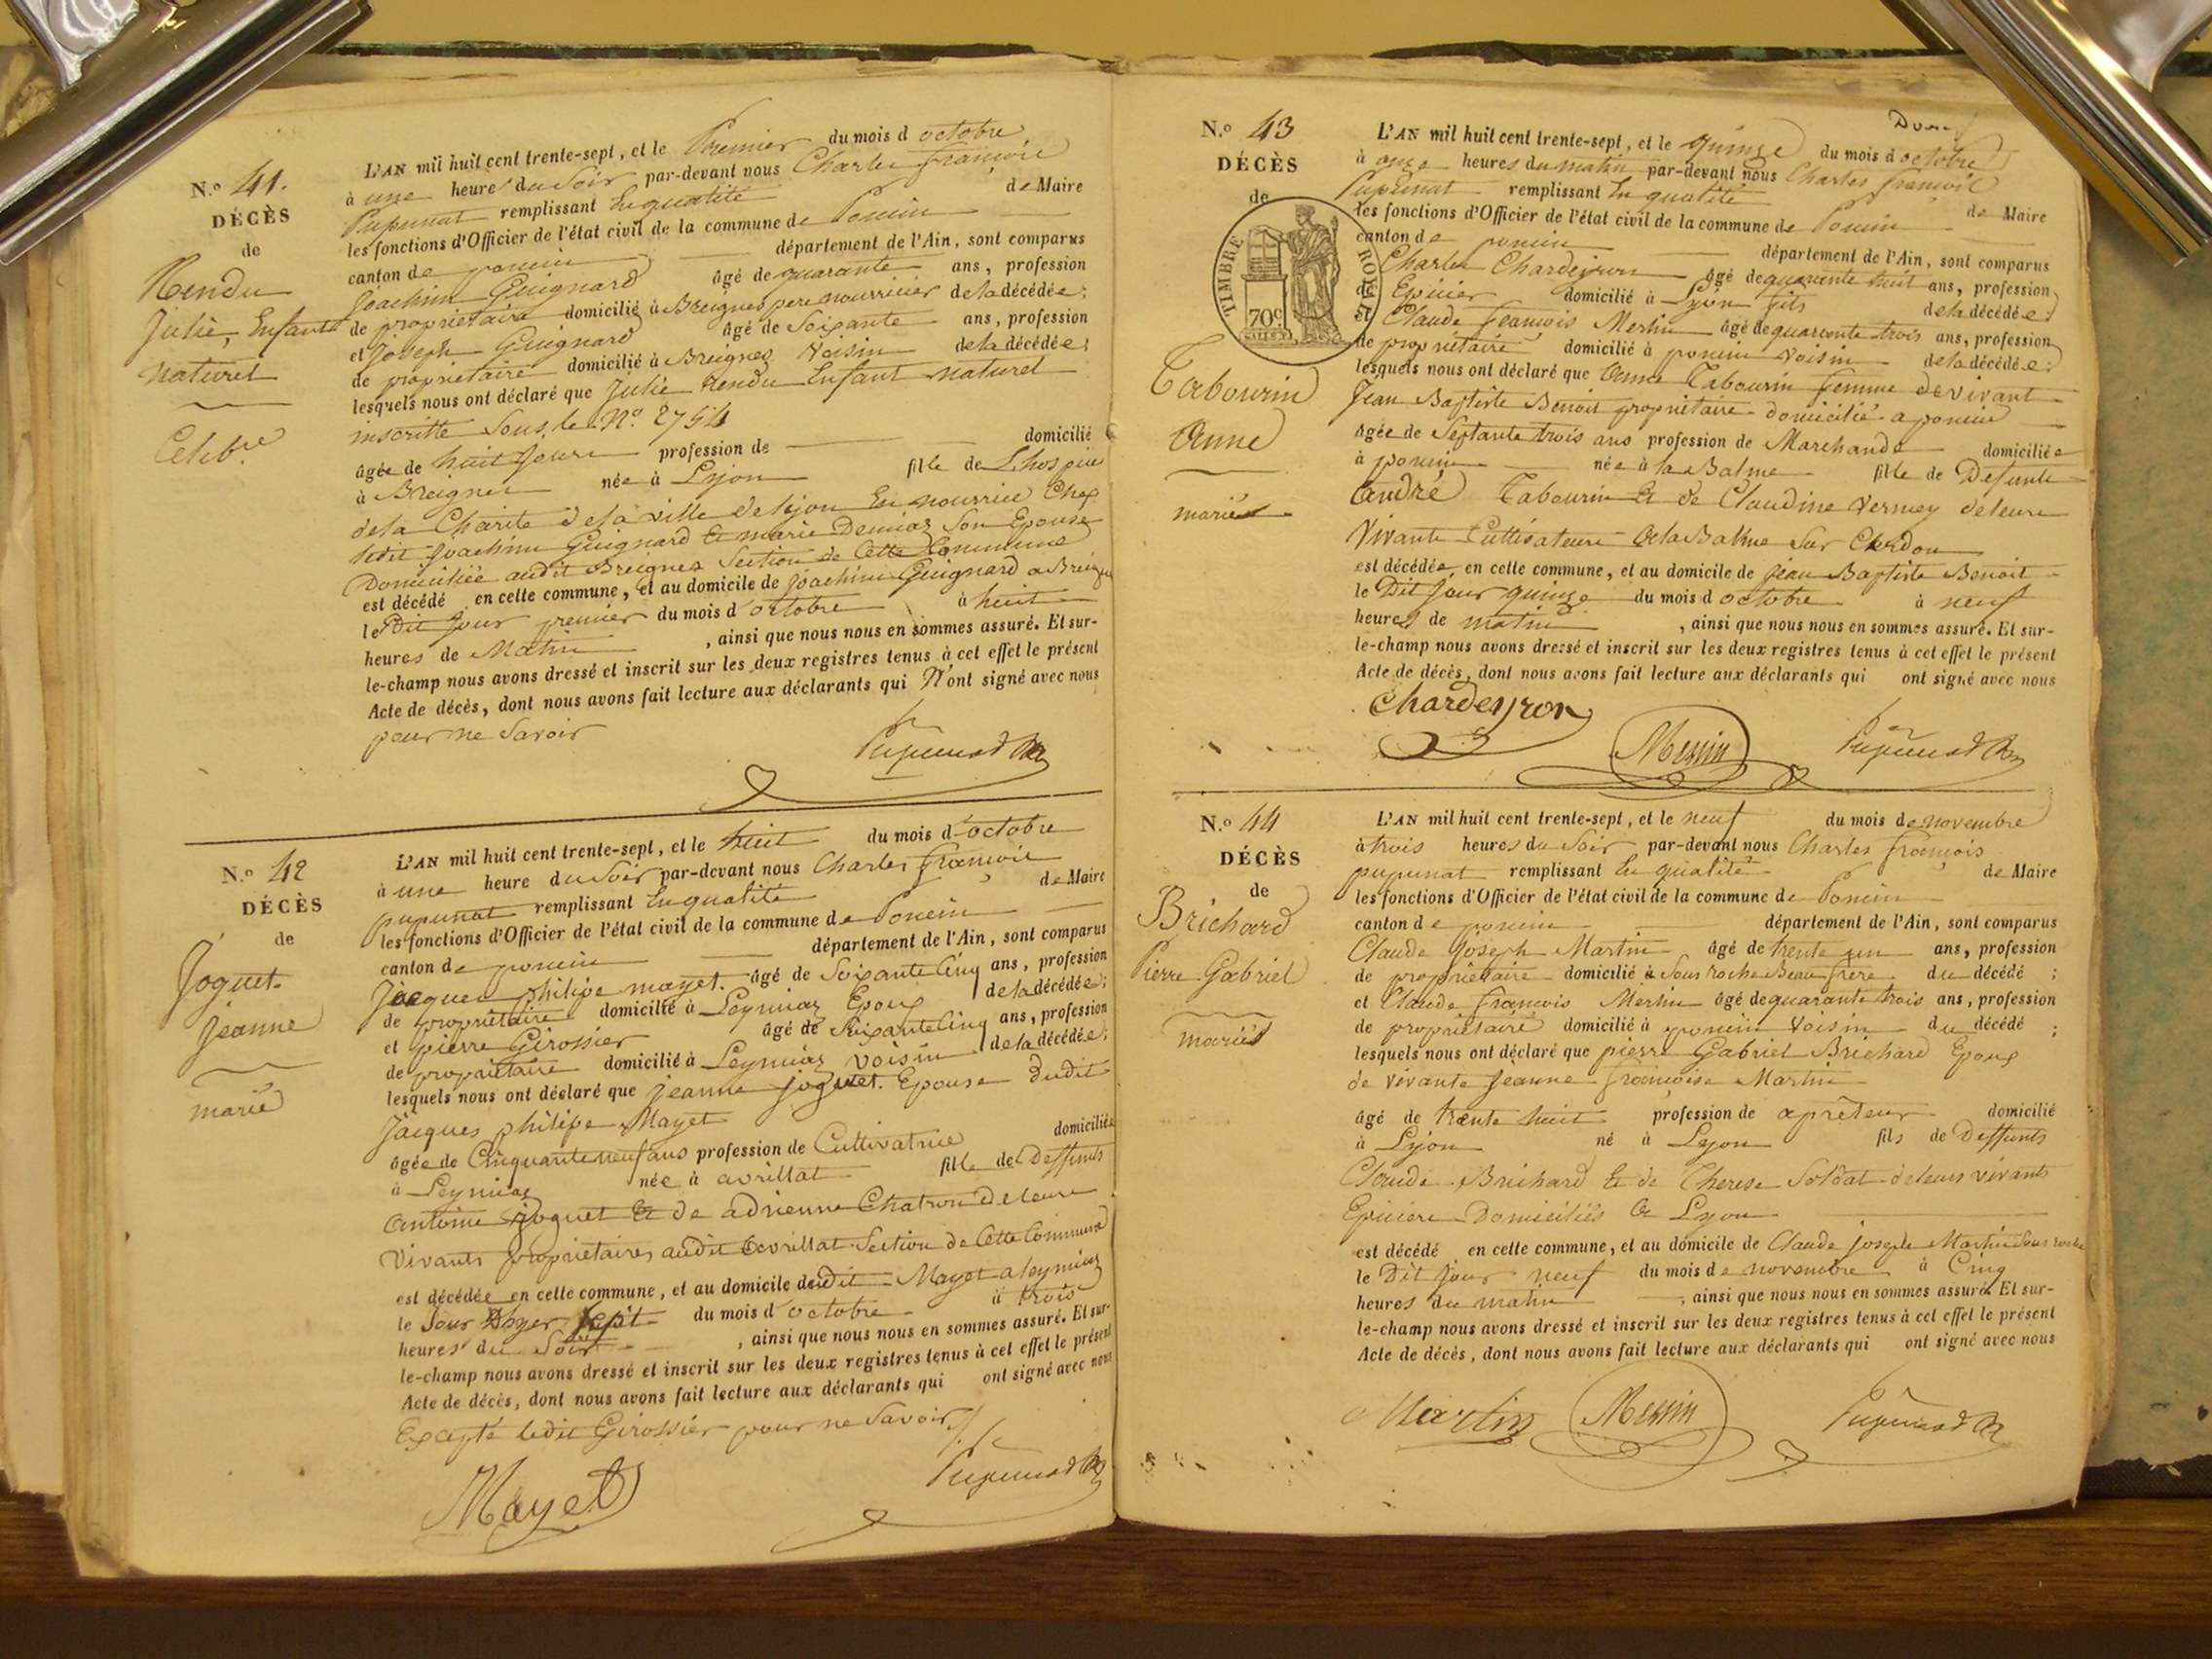 N.º 41.
DÉCÈS
de
Rendu
Julie, Enfant
naturel
Celibre
L'AN mil huit cent trente-sept, et le Premier du mois d octobre
à une heure du Soir par-devant nous Charles françois
Pupunat remplissant En qualité de Maire
les fonctions d'Officier de l'état civil de la commune de Poncin
canton de poncin département de l'Ain, sont comparus
Joachim Guignard âgé de quarante ans, profession
de proprietaire domicilié à Breignes pere nourricier de la décédée;
et Joseph Guignard âgé de Soixante ans, profession
de proprietaire domicilié à Breignes Voisin de la décédée;
lesquels nous ont déclaré que Julie Rendu Enfant naturel
inscritte Sous le Nº 2754
âgée de huit Jours profession de domicilié
à Breignes née à Lyon fille de Lhospice
de la Charite de la ville de Lyon En nourrice Chez
ledit Joachim Guignard Et marie Demiaz Son Epouse
Domiciliée audit Breignes Section de Cette Commune
est décédé en cette commune, et au domicile de Joachim Guignard a Breignes
le Dit Jour premier du mois d'octobre à huit
heures de Matin, ainsi que nous nous en sommes assuré. Et sur-
le-champ nous avons dressé et inscrit sur les deux registres tenus à cet effet le présent
Acte de décès, dont nous avons fait lecture aux déclarants qui N'ont signé avec nous
pour ne Savoir
Pupunat
N.º 42
DÉCÈS
de
Joguet
Jeanne
marié
L'AN mil huit cent trente-sept, et le huit du mois d'octobre
à une heure du Soir par-devant nous Charles françois
pupunat remplissant En qualité de Maire
les fonctions d'Officier de l'état civil de la commune de Poncin
canton de poncin département de l'Ain, sont comparus
Jacques philipe mayet. âgé de Soixante Cinq ans, profession
de propriétaire domicilié à Leymiaz Epoux de la décédée;
et pierre Girossier âgé de Soixante Cinq ans, profession
de propriétaire domicilié à Leymiaz voisin de la décédée;
lesquels nous ont déclaré que Jeanne joguet. Epouse dudit
Jacques philipe Mayet
âgée de Cinquante neuf ans profession de Cultivatrice domiciliée
à Leymiaz née à avrillat fille de Deffunts
Antoine Joguet Et de adrienne Chatron de leurs
Vivants propriétaires audit avrillat Section de Cette Commune
est décédée en cette commune, et au domicile dudit Mayet a leymiaz
le Jour Dhyer Sept du mois d'octobre à trois
heures du Soir, ainsi que nous nous en sommes assuré. Et sur-
le-champ nous avons dressé et inscrit sur les deux registres tenus à cet effet le présent
Acte de décès, dont nous avons fait lecture aux déclarants qui ont signé avec nous
Excepté ledit Girossier pour ne Savoir
Mayet
Pupunat
N.º 43
DÉCÈS
de
TIMBRE ROYAL
70c
Tabourin
Anne
mariée
L'AN mil huit cent trente-sept, et le quinze du mois d octobre
à onze heures du matin par-devant nous Charles françois
Pupunat remplissant En qualité de Maire
les fonctions d'Officier de l'état civil de la commune de Poncin
canton de poncin département de l'Ain, sont comparus
Charles Chardeyron âgé de quarante huit ans, profession
de Epicier domicilié à Lyon fils de la décédée;
et Claude francois Merlin âgé de quarante trois ans, profession
de propriétaire domicilié à poncin voisin de la décédée;
lesquels nous ont déclaré que Anne Tabourin femme de vivant
Jean Baptiste Benoit propriétaire domicilié a poncin
âgée de Septante trois ans profession de Marchande domiciliée
à poncin née à la Balme fille de Defunts
André Tabourin Et de Claudine Vermey de leurs
Vivants Cultivateurs de la Balme Sur Cerdon
est décédée en cette commune, et au domicile de Jean Baptiste Benoit
le Dit Jour quinze du mois d octobre à neuf
heures de matin, ainsi que nous nous en sommes assuré. Et sur-
le-champ nous avons dressé et inscrit sur les deux registres tenus à cet effet le présent
Acte de décès, dont nous avons fait lecture aux déclarants qui ont signé avec nous
Chardeyron
Merlin
Pupunat
N.º 44
DÉCÈS
de
Brichard
Pierre Gabriel
marié
L'AN mil huit cent trente-sept, et le neuf du mois de novembre
à trois heures du Soir par-devant nous Charles françois
pupunat remplissant En qualité de Maire
les fonctions d'Officier de l'état civil de la commune de Poncin
canton de poncin département de l'Ain, sont comparus
Claude Joseph Martin âgé de trente un ans, profession
de propriétaire domicilié à Sous roche Beau frère du décédé;
et Claude francois Merlin âgé de quarante trois ans, profession
de propriétaire domicilié à poncin Voisin du décédé;
lesquels nous ont déclaré que pierre Gabriel Brichard Epoux
de vivante Jeanne françoise Martin
âgé de trente huit profession de aprêteur domicilié
à Lyon né à Lyon fils de Deffunts
Claude Brichard Et de Therese Soldat de leurs vivants
Epiciers Domiciliés a Lyon
est décédé en cette commune, et au domicile de Claude joseph Martin Sous roche
le Dit Jour neuf du mois de novembre à Cinq
heures du matin, ainsi que nous nous en sommes assuré. Et sur-
le-champ nous avons dressé et inscrit sur les deux registres tenus à cet effet le présent
Acte de décès, dont nous avons fait lecture aux déclarants qui ont signé avec nous
Martin
Merlin
Pupunat